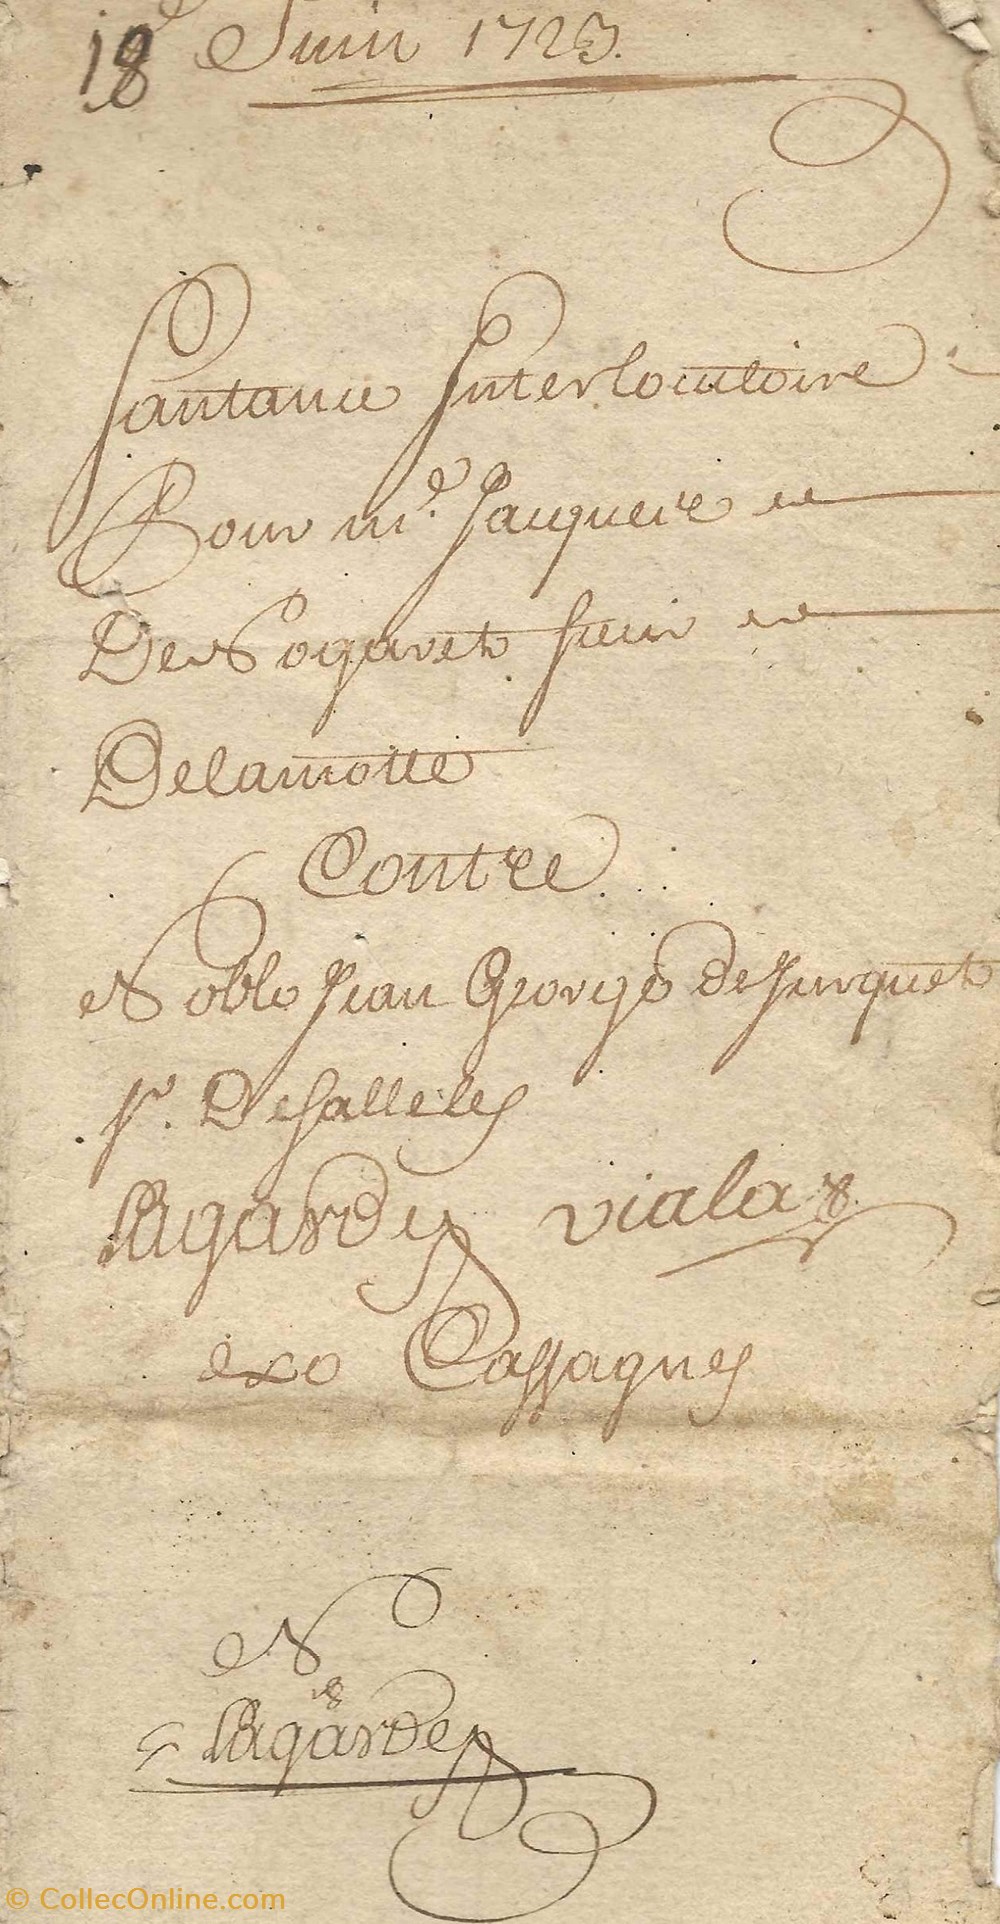 18e Juin 1723.
Santance Interlocutoire
Pour mr. Jacques
De Nogaret sieur
Delamotte
Contre
Noble Jean George de Jurquet
sr. De Salleles
lagarde viala
exo Cassagnes
N
18
lagarde
© CollecOnline.com